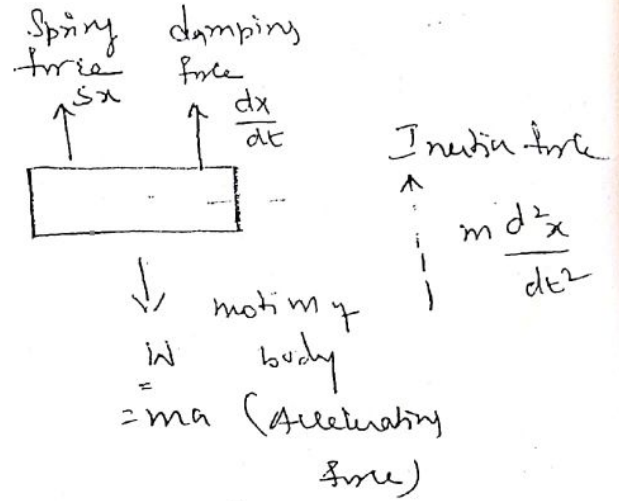 Spring damping
force force
Sx dx/dt
Inertia force
m d²x/dt²
motion of
W body
=
= ma (Accelerating
force)